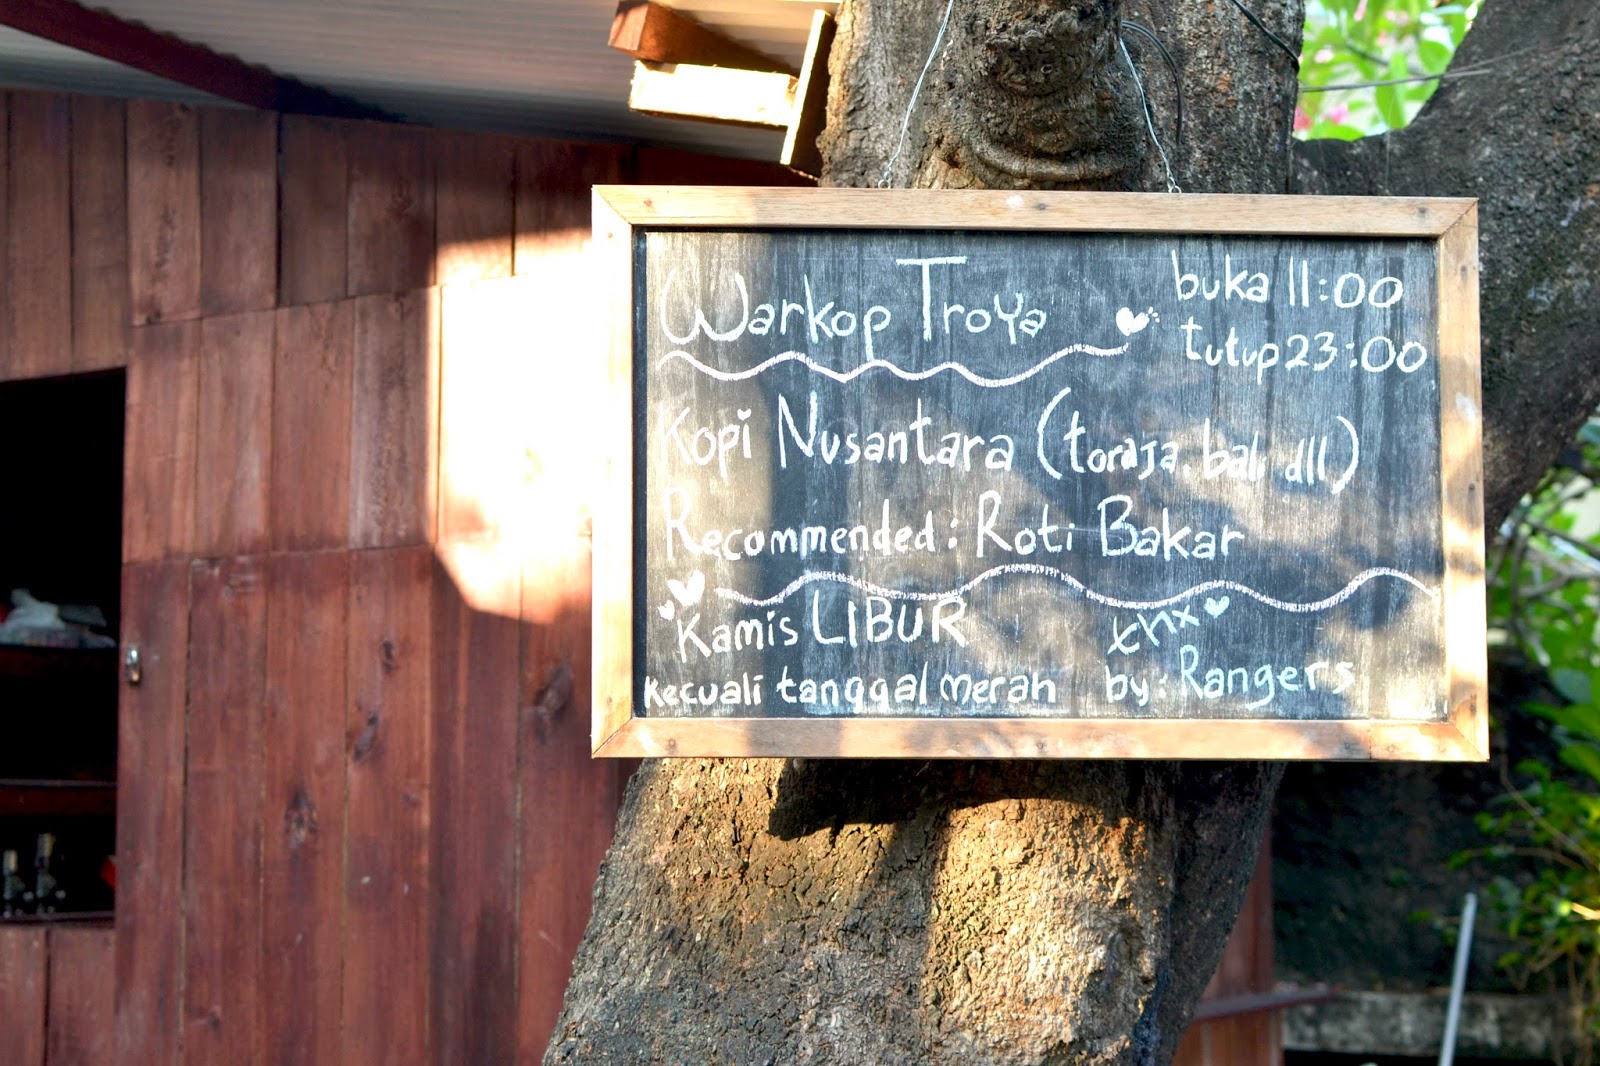 Warkop Troya
buka 11:00
tutup 23:00
Kopi Nusantara (toraja, bali, dll)
Recommended: Roti Bakar
Kamis LIBUR
kecuali tanggal merah
tnx
by: Rangers